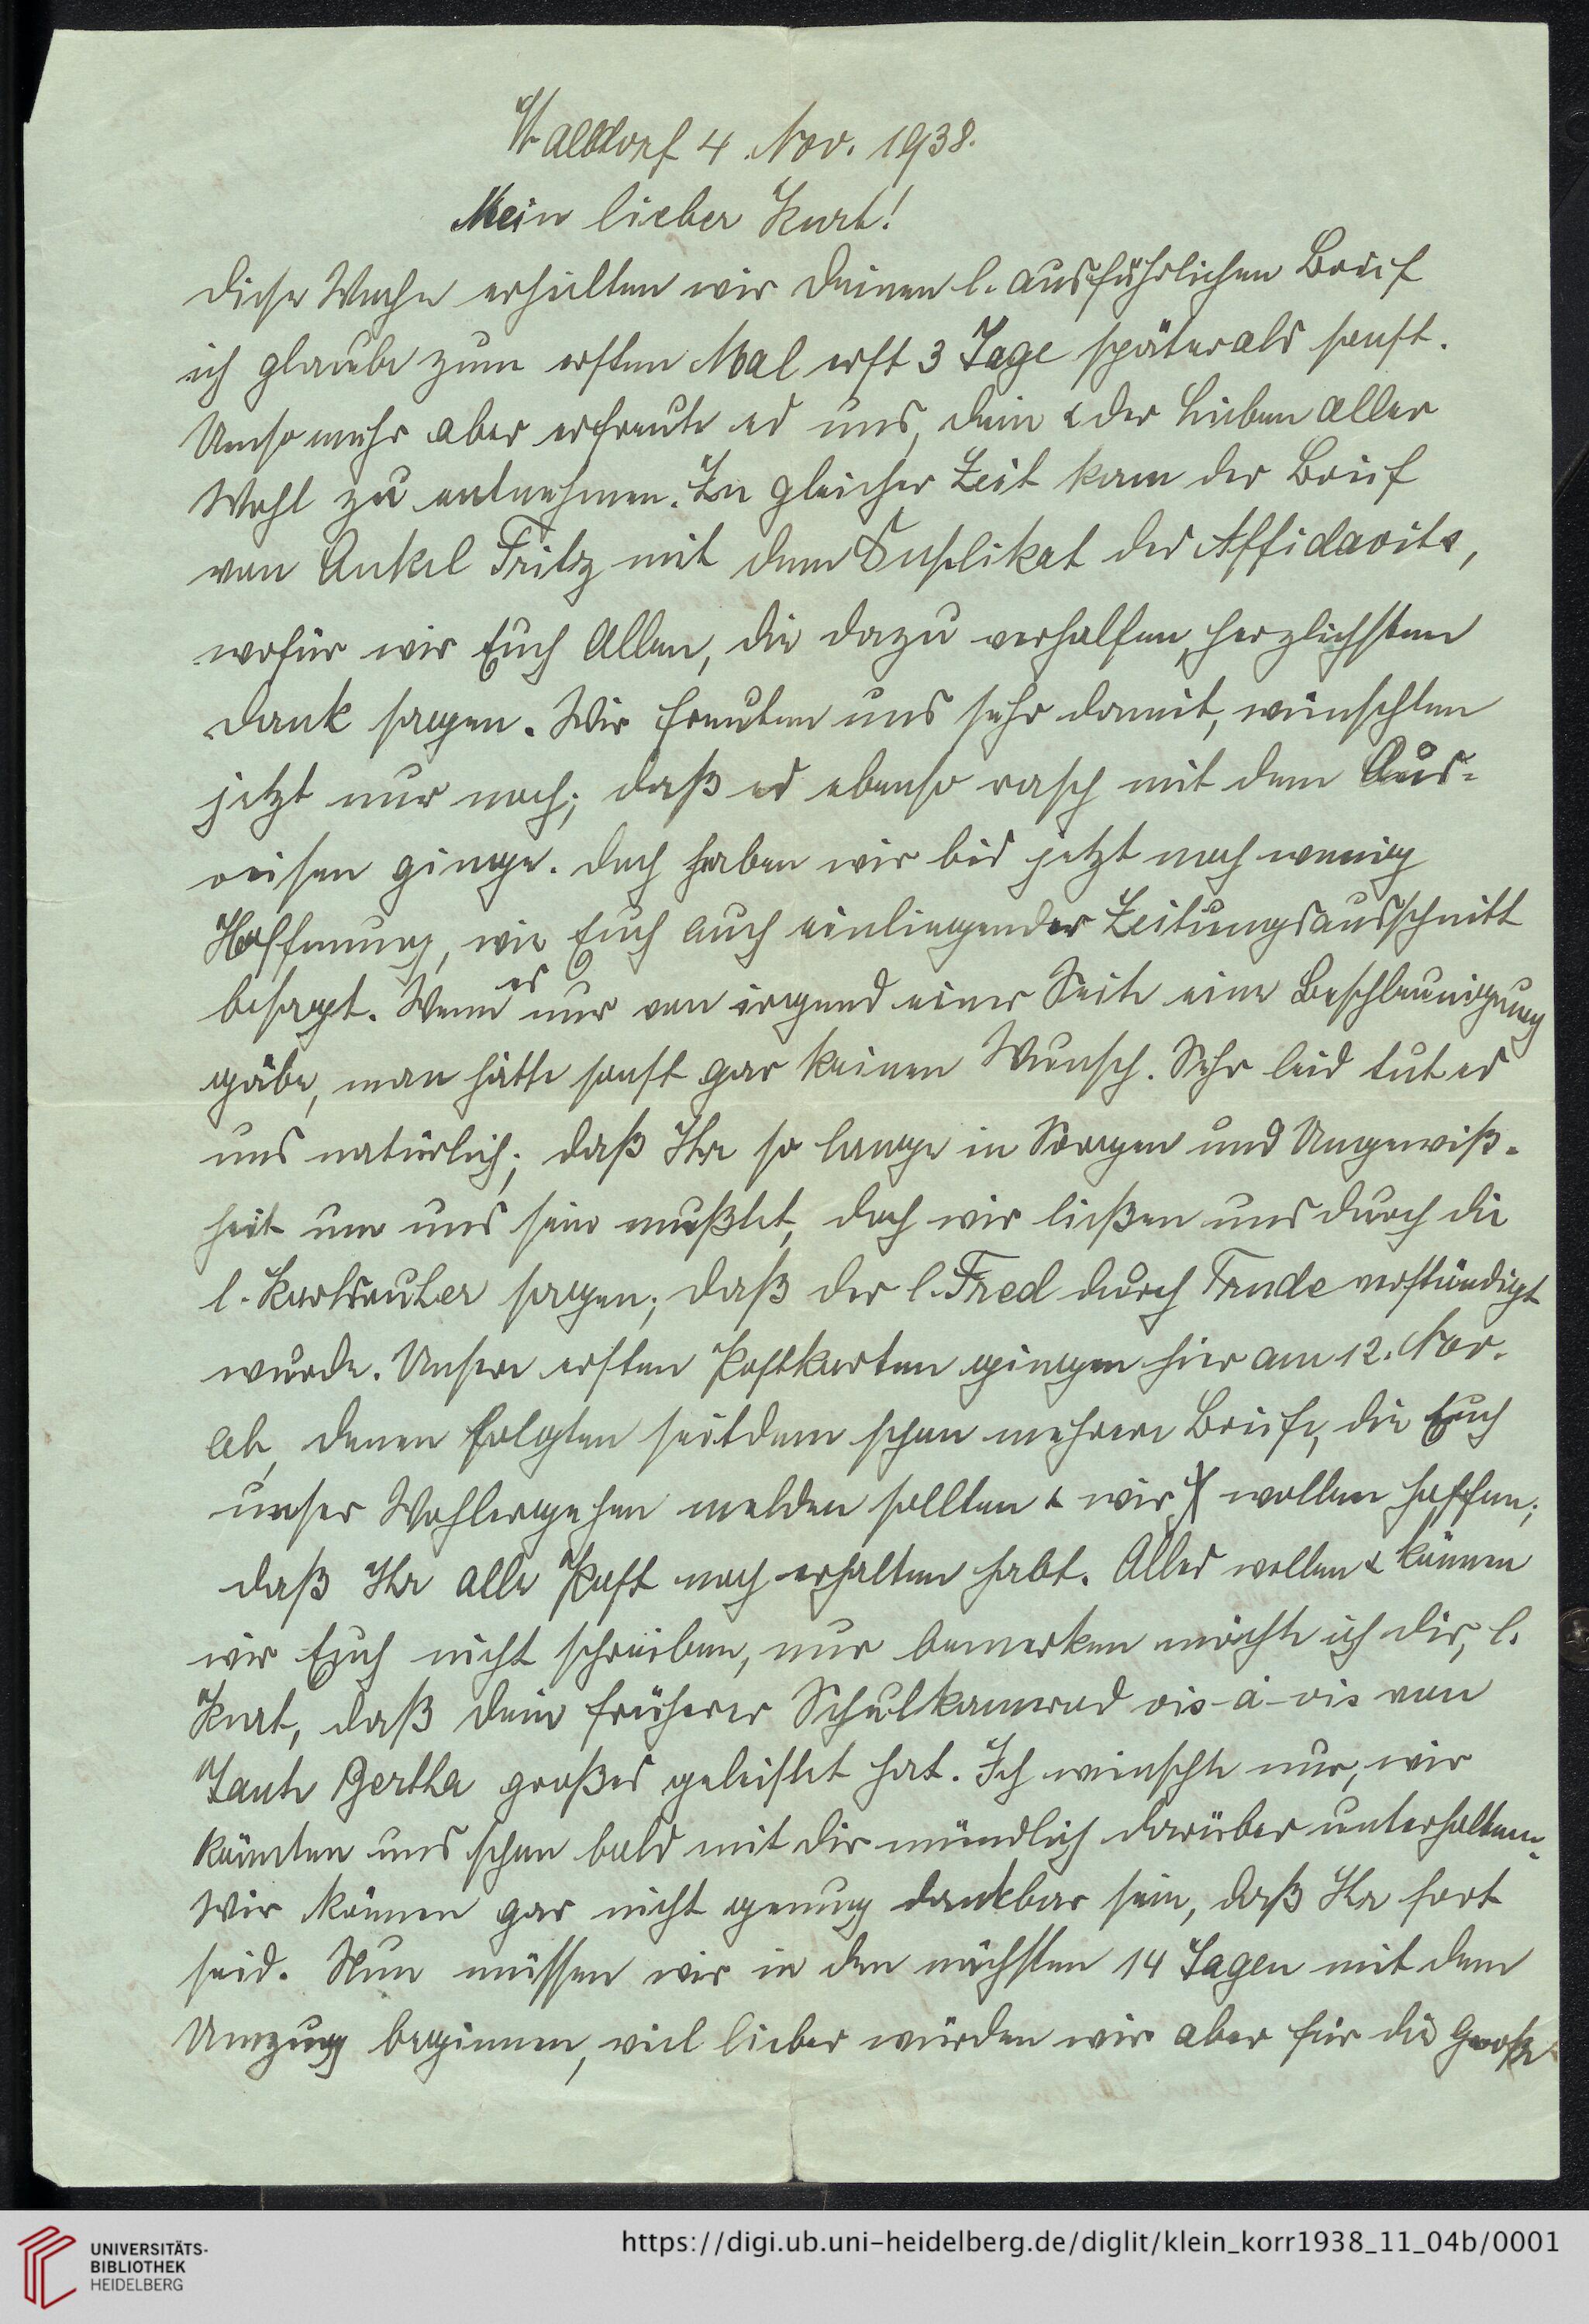 Walldorf 4. Nov. 1938.
Mein lieber Kurt!
Diese Woche erhielten wir Deinen l. ausführlichen Brief
ich glaube zum ersten Mal erst 3 Tage später als sonst.
Umso mehr aber erfreute es uns, Dein & der Lieben aller
Wohl zu entnehmen. Zu gleicher Zeit kam der Brief
von Onkel Fritz mit dem Duplikat des Affidavits,
wofür wir Euch Allen, die dazu verhalfen, herzlichsten
Dank sagen. Wir freuten uns sehr damit, wünschten
jetzt nur noch; daß es ebenso rasch mit dem Aus-
reisen ginge. Doch haben wir bis jetzt noch wenig
Hoffnung, wie Euch auch einliegender Zeitungsausschnitt
besagt. Wenn es nur von irgend einer Seite eine Beschleunigung
gäbe, man hätte sonst gar keinen Wunsch. Sehr leid tut es
uns natürlich; daß Ihr so lange in Sorgen und Ungewiß-
heit um uns sein mußtet, doch wir ließen uns durch die
l. Karlsruher sagen; daß der l. Fred durch Trude verständigt
wurde. Unsere ersten Postkarten gingen hier am 12. Nov.
ab, denen folgten seitdem schon mehrere Briefe, die Euch
unser Wohlergehen melden sollten & wir wollen hoffen;
daß Ihr alle Post noch erhalten habt. Alles wollen & können
wir Euch nicht schreiben, nur bemerken möchte ich Dir, l.
Kurt, daß Dein früherer Schulkamerad vis-à-vis von
Tante Bertha großes geleistet hat. Ich wünschte nur, wir
könnten uns schon bald mit Dir mündlich darüber unterhalten.
Wir können gar nicht genug dankbar sein, daß Ihr fort
seid. Nun müssen wir in den nächsten 14 Tagen mit dem
Umzug beginnen, viel lieber würden wir aber für die Große
UNIVERSITÄTS-
BIBLIOTHEK
HEIDELBERG
https://digi.ub.uni-heidelberg.de/diglit/klein_korr1938_11_04b/0001